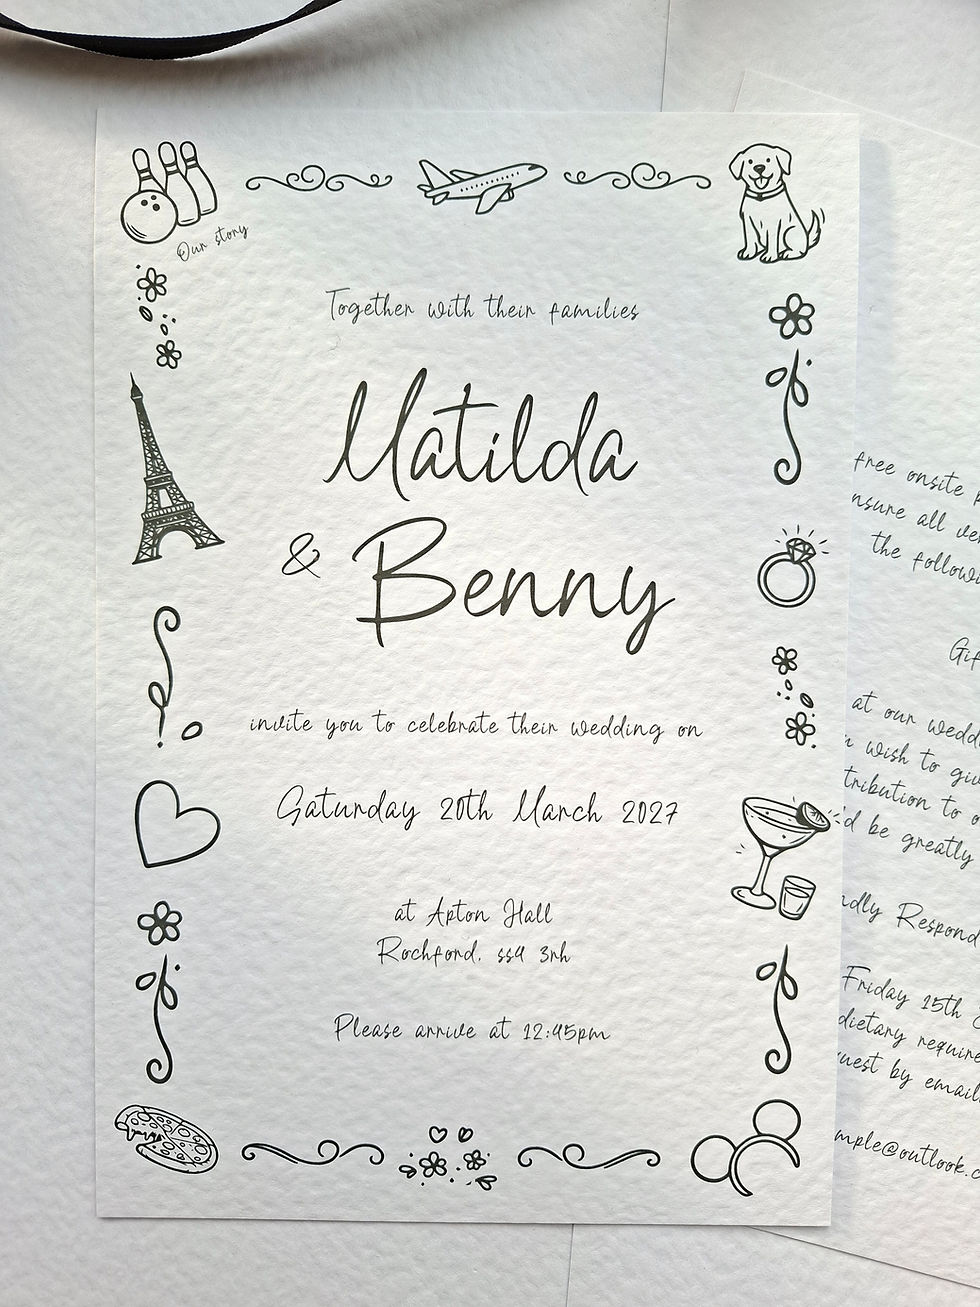 Our story
Together with their families
Matilda
& Benny
invite you to celebrate their wedding on
Saturday 20th March 2027
at Apton Hall
Rochford, ss4 3rh
Please arrive at 12:45pm
free onsite
nsure all
the
at our wedd
wish to
tribution to
d be greatly
ndly Respond
Friday 15th
dietary require
uest by email
mple@outlook.c